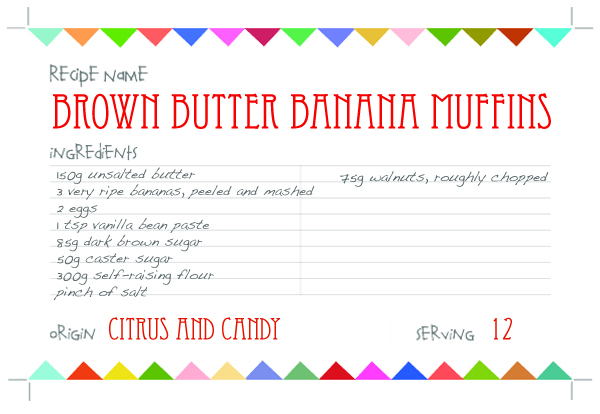 RECIPE NAME
BROWN BUTTER BANANA MUFFINS
INGREDIENTS
150g unsalted butter
3 very ripe bananas, peeled and mashed
2 eggs
1 tsp vanilla bean paste
85g dark brown sugar
50g caster sugar
300g self-raising flour
pinch of salt
75g walnuts, roughly chopped
ORIGIN CITRUS AND CANDY
SERVING 12